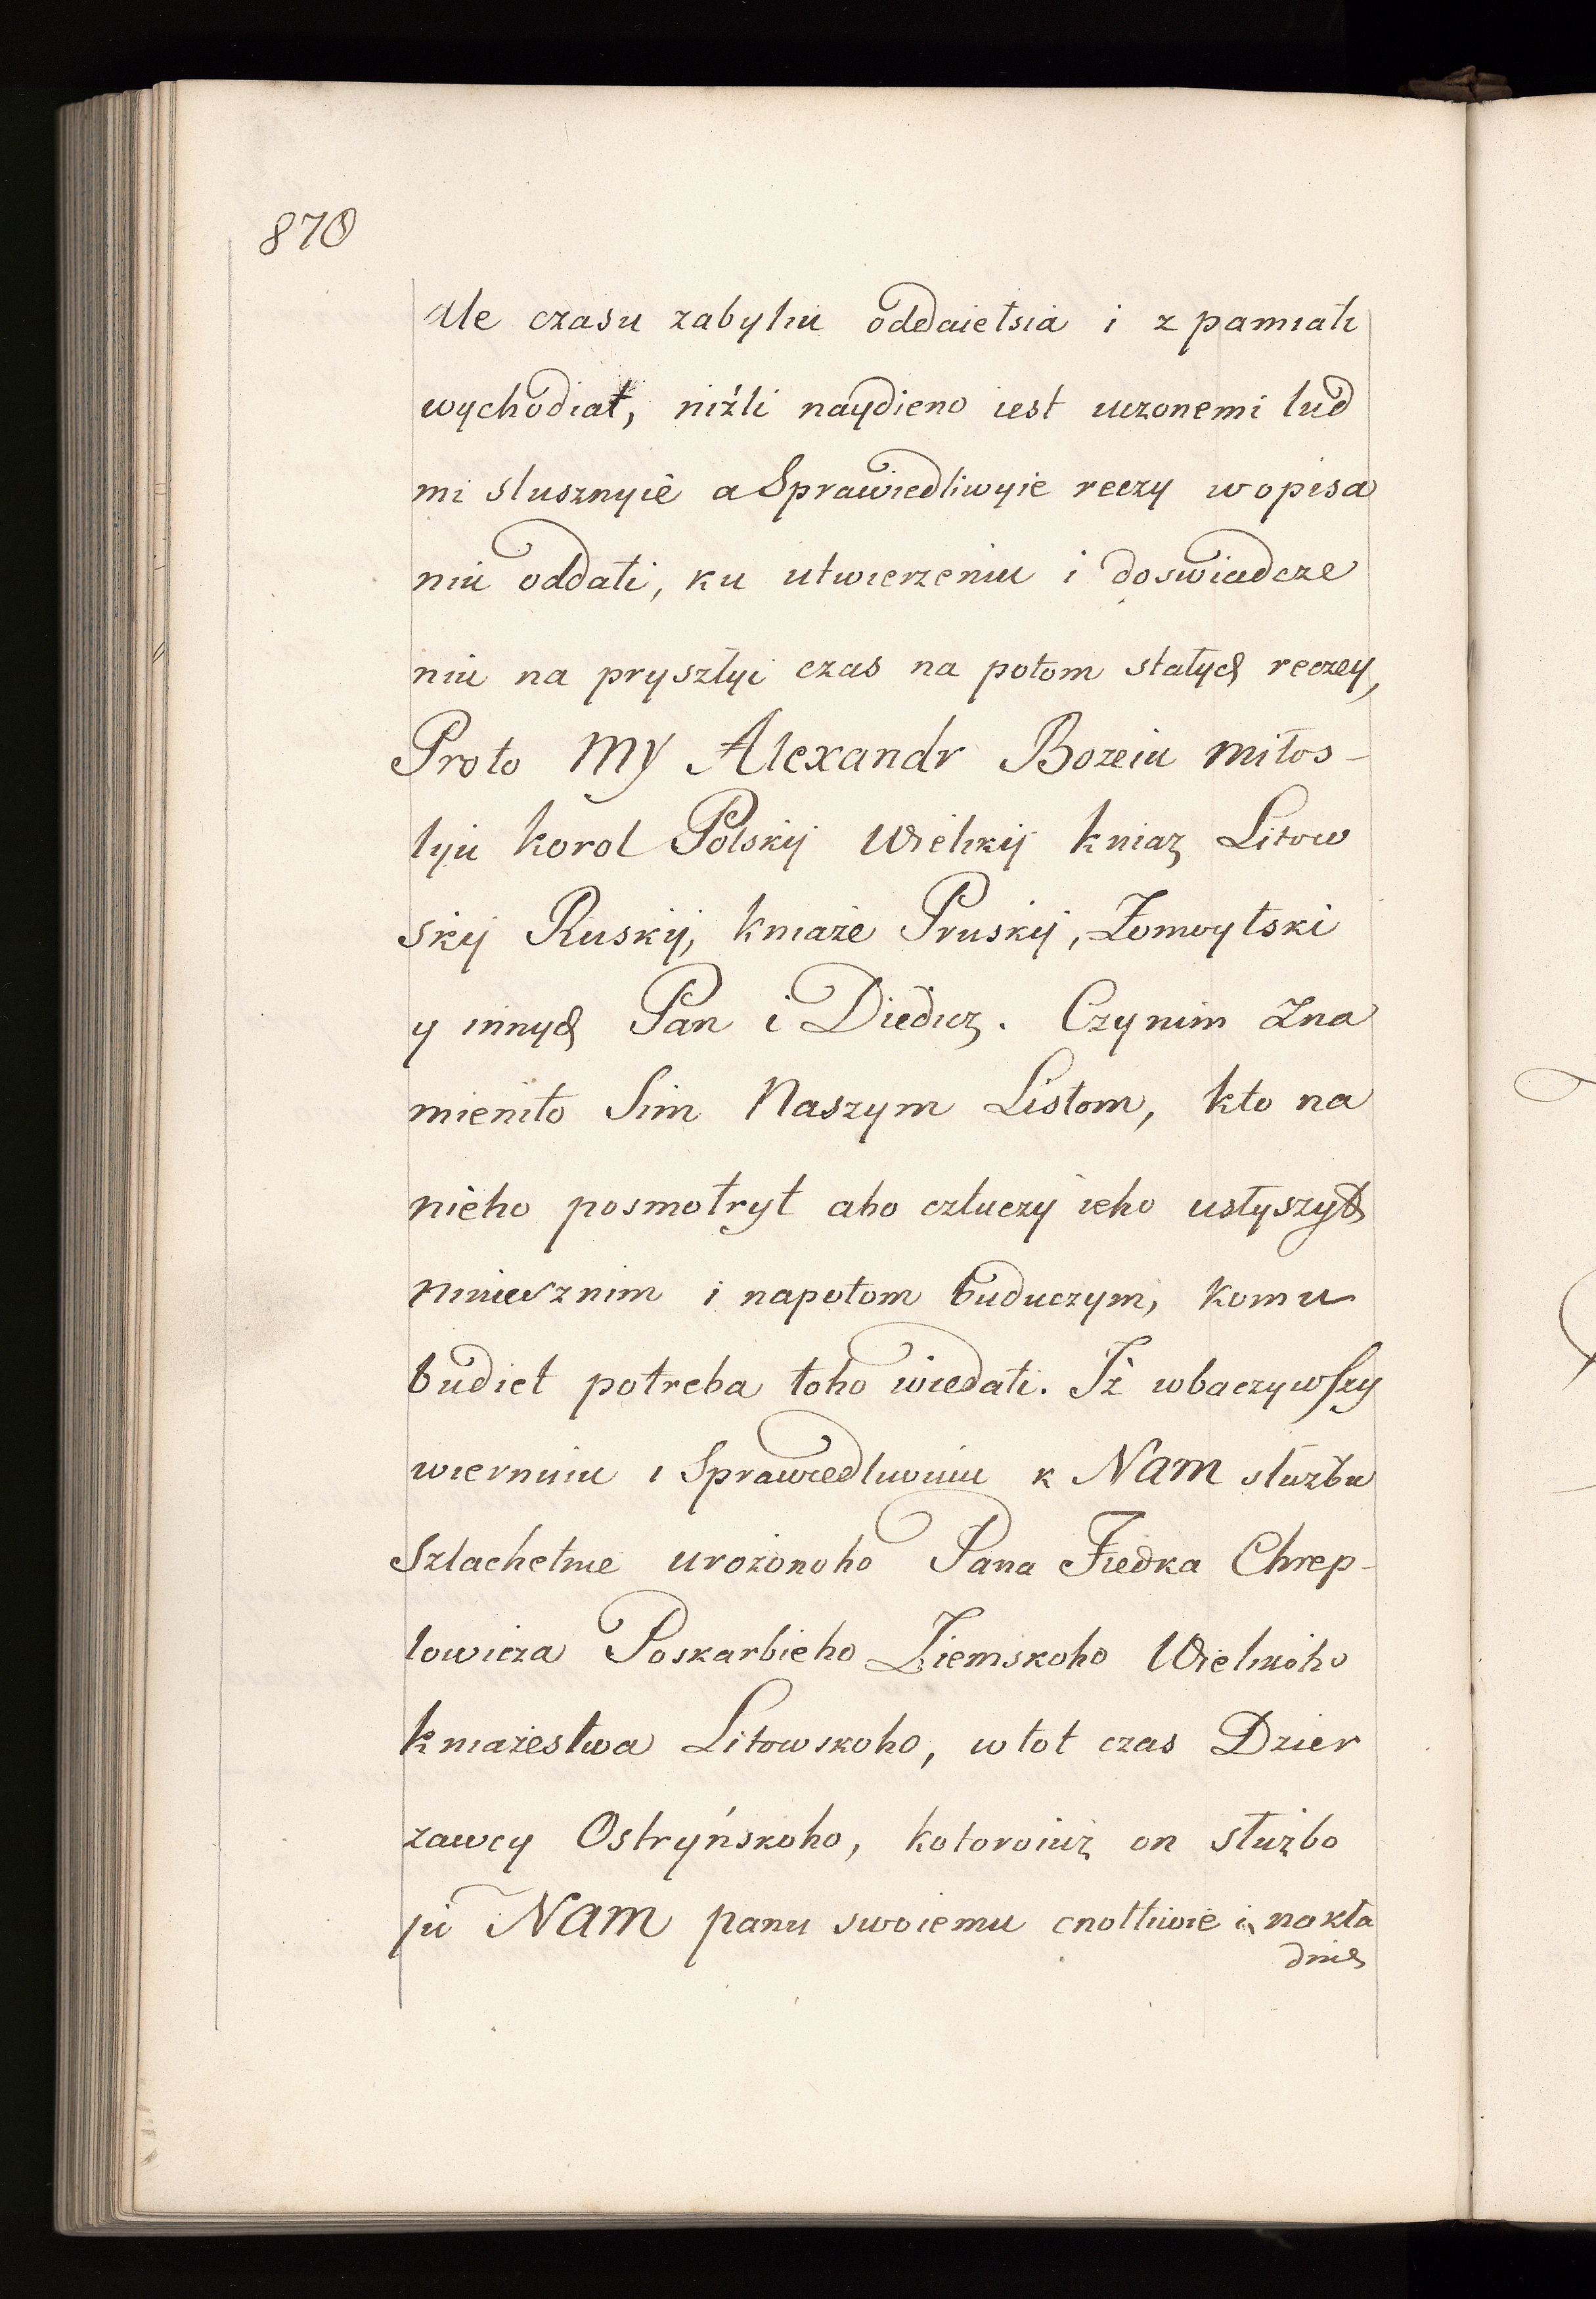 870
Ale czasu zabytiu oddaietsia i z pamiati
wychodiat, niżli naydieno iest uczonemi lud
mi słusznyie a Sprawiedliwyie reczy w opisa
niu oddati, ku utwierzeniu i doswiadcze
niu na pryszłyi czas na potom stałych reczey,
Proto My Alexandr Bozeiu miłos-
tyiu korol Polskij Wielikij kniaz Litow
skij Ruskij, kniaże Pruskij, Żomoytski
y innych Pan i Diedicz. Czynim Zna
menito Sim Naszym Listom, kto na
nieho posmotryt abo cztuczy ieho usłyszyt
Niniesznim i napotom buduczym, komu
budiet potreba toho wiedati. Iż wbaczywszy
wiernuiu i Sprawiedliwuiu k Nam służbu
Szlachetnie urożonoho Pana Fiedka Chrep-
towicza Poskarbieho Ziemskoho Wielikoho
kniażestwa Litowskoho, w tot czas Dzier
zawcy Ostryńskoho, kotoroiuż on służbo
ju Nam panu swoiemu cnotliwie i nakła
dnie